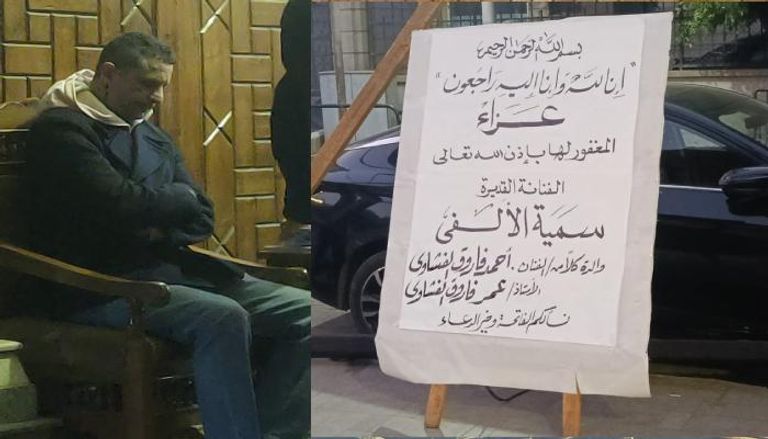 بسم الله الرحمن الرحيم
"إنا لله وإنا إليه راجعون"
عزاء
المغفور لها بإذن الله تعالى
الفنانة القديرة
سمية الألفى
والدة كلا من / الفنان . أحمد فاروق الفيشاوى
الأستاذ / عمر فاروق الفيشاوى
نسألكم الفاتحة وخير الدعاء